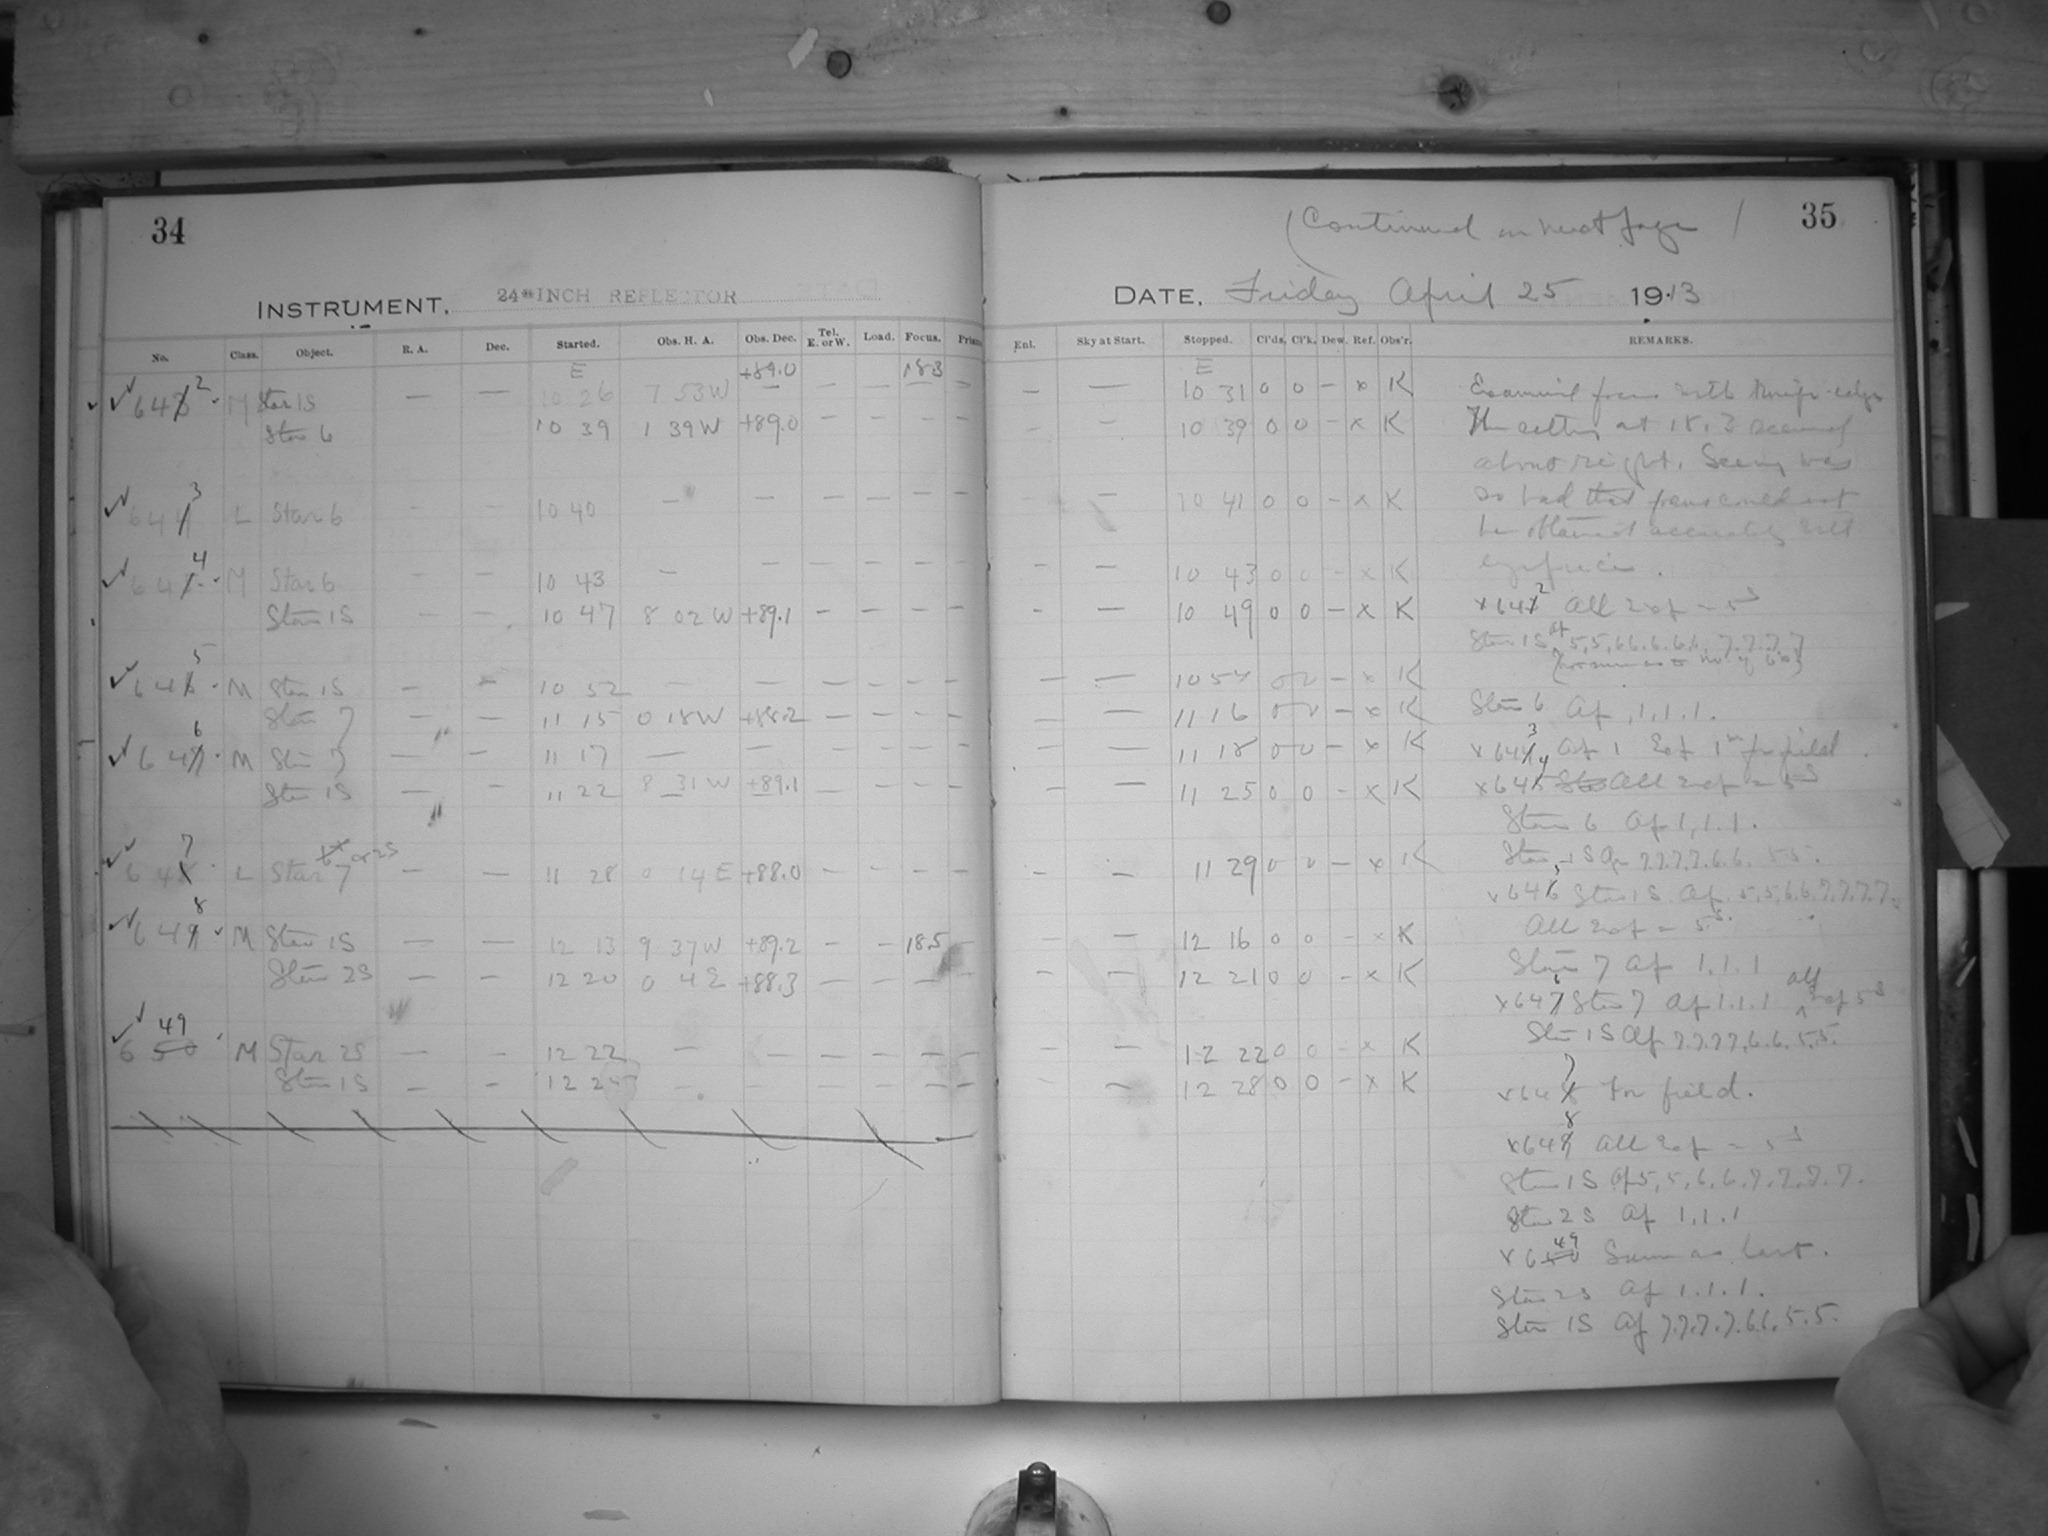 34
INSTRUMENT, 24 INCH REFLECTOR
No. Class. Object. R. A. Dec. Started. Obs. H. A. Obs. Dec. Tel. E. or W. Load. Focus. Prism
E +89.0 18.3
6432 M Star 1S — — 10 26 7 53 W — — — —
Star 6 10 39 1 39 W +89.0 — — — —
3
644 L Star 6 - - 10 40 — — — — — —
4
645 M Star 6 — — 10 43 — — — — — —
Star 1S — — 10 47 8 02 W +89.1 — — — —
5
646 M Star 1S — — 10 52 — — — — — —
Star 7 — — 11 15 0 18 W +88.2 — — — —
6
647 M Star 7 — — 11 17 — — — — — —
Star 1S — — 11 22 8 31 W +89.1 — — — —
7
648 L Star 7 or 2S — — 11 28 0 14 E +88.0 — — — —
8
649 M Star 1S — — 12 13 9 37 W +89.2 — — 18.5
Star 2S — — 12 20 0 4 E +88.3 — — — —
49
650 M Star 2S — — 12 22 — — — — — —
Star 1S — — 12 24 — — — — — —
(Continued on next page) 35
DATE, Friday April 25 1913
Enl. Sky at Start. Stopped. Cl'ds. Cl'k. Dew. Ref. Obs'r. REMARKS.
E
— — 10 31 0 0 - x K
— — 10 39 0 0 - x K
— — 10 41 0 0 - x K
— — 10 43 0 0 - x K
- — 10 49 0 0 - x K
— — 10 54 0 0 - x K
— — 11 16 0 0 - x K
— 11 18 0 0 - x K
— — 11 25 0 0 - x K
- — 11 29 0 0 - x K
— — 12 16 0 0 - x K
— — 12 21 0 0 - x K
— — 12 22 0 0 - x K
— — 12 28 0 0 - x K
Examined focus with Knife-edge
The setting at 18.3 seemed
about right. Seeing was
so bad that focus could not
be obtained accurately with
eyepiece.
x642 All = 5s
Star 1S Ap 5,5,6,6,6,6,6,7,7,7,7
Star 6 Ap 1.1.1.
x643 Ap 1 1m for field.
x644 All = 5s
Star 6 Ap 1,1.1.
Star 1S Ap 7.7.7.7.6.6.5.5.
x645 Star 1S. Ap. 5,5,6,6,7,7,7,7.
All = 5s.
Star 7 Ap 1.1.1
x646 Star 7 Ap 1.1.1 all 5s
Star 1S Ap 7.7.7.7,6.6.5.5.
x647 For field.
x648 All = 5s
Star 1S Ap 5,5,6,6,7,7,7,7.
Star 2S Ap 1.1.1
x649 Same as last.
Star 2S Ap 1.1.1.
Star 1S Ap 7.7.7.7.6.6.5.5.